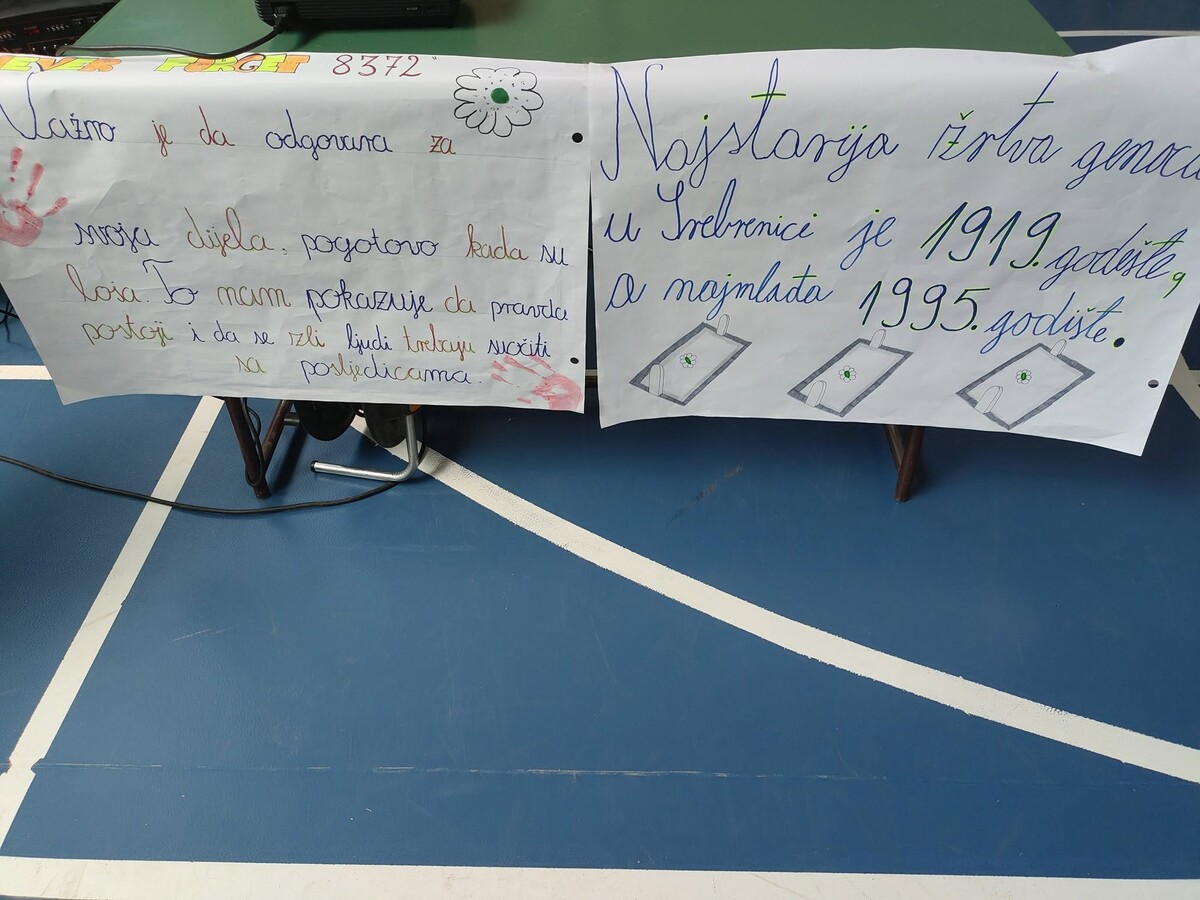 EVER FORGET 8372"
Važno je da odgovara za
svoja dijela, pogotovo kada su
loša. To nam pokazuje da pravda
postoji i da se zli ljudi trebaju suočiti
sa posljedicama.
Najstarija žrtva genoci
u Srebrenici je 1919. godešte,
a najmlađa 1995. godište.